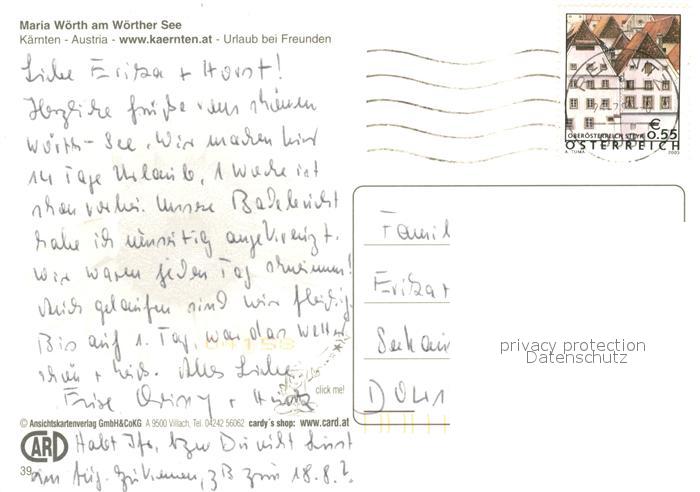 Maria Wörth am Wörther See
Kärnten - Austria - www.kaernten.at - Urlaub bei Freunden
Liebe Erika + Horst!
Herzliche Grüße vom schönen
Wörth-See. Wir machen hier
14 Tage Urlaub, 1 Woche ist
schon vorbei. Unsere Badebucht
habe ich
Wir waren jeden Tag schwimmen!
Auch gelaufen sind wir fleißig.
Bis auf 1. Tag, war das Wetter
schön + heiß. Alles Liebe
click me!
© Ansichtskartenverlag GmbH&CoKG A 9500 Villach, Tel. 04242 56062 cardy´s shop: www.card.at
CARD
Habt Ihr, bzw Du nicht Lust
im Aug. zu kommen, zB zum 18.8.?
39
€ 0.55
OBERÖSTERREICH STEYR
ÖSTERREICH
A. TUMA 2003
Famil
Erika +
privacy protection
Datenschutz